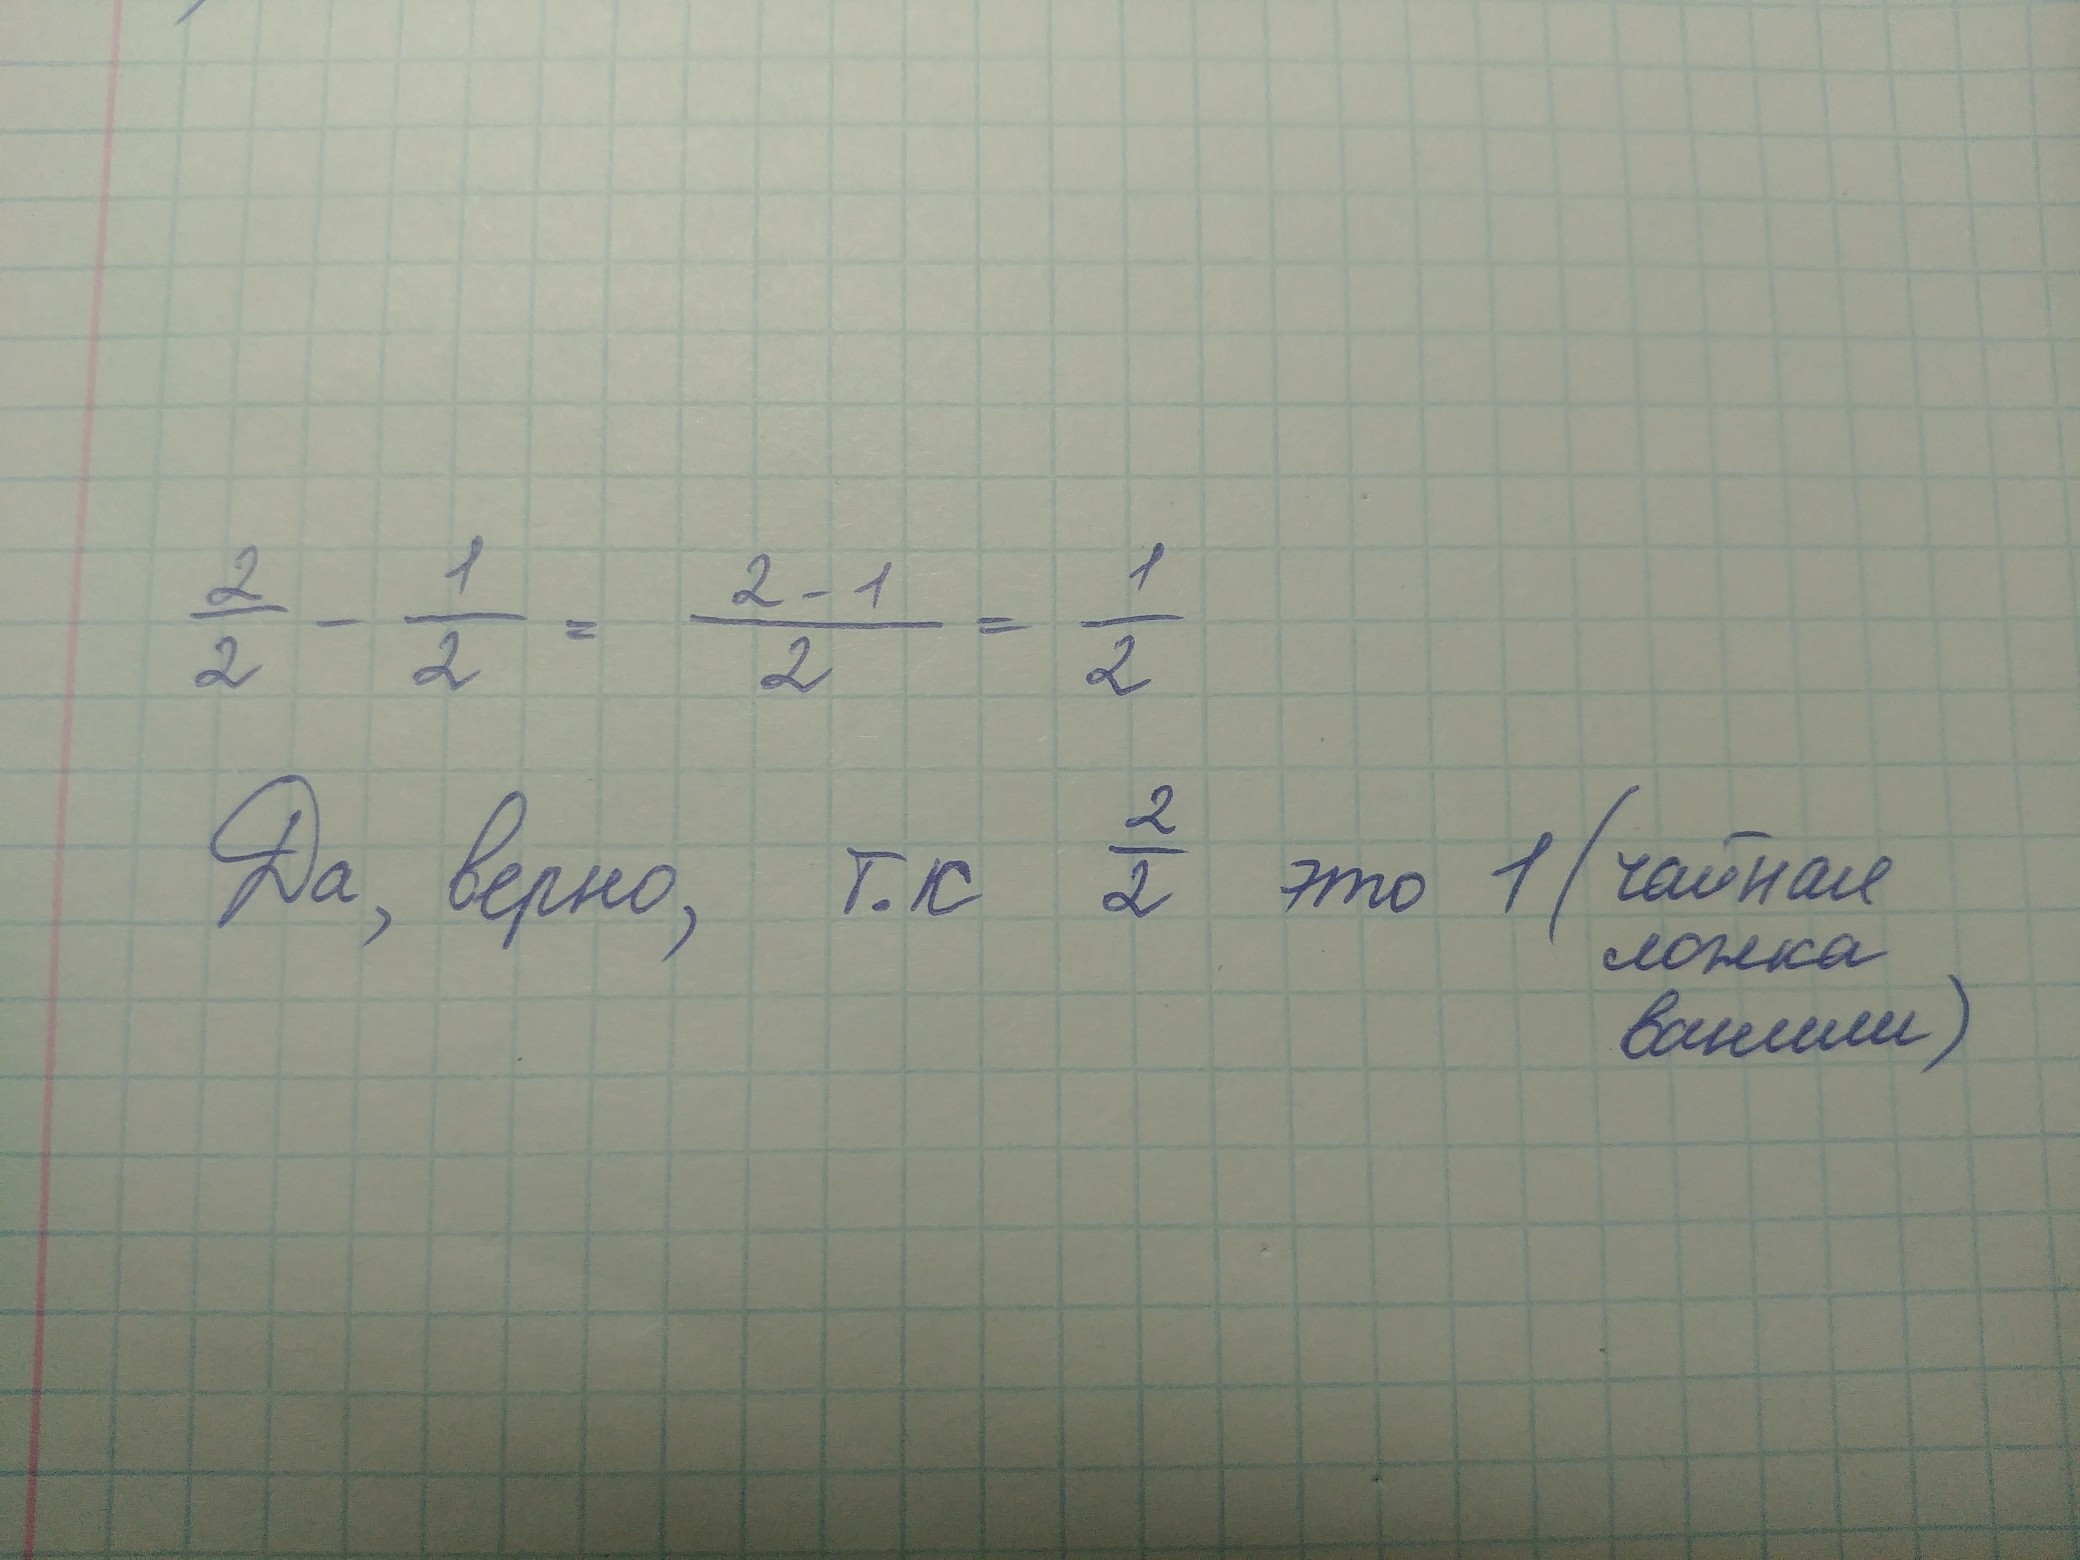 2/2 - 1/2 = (2-1)/2 = 1/2
Да, верно, т.к 2/2 это 1 (чайная
ложка
ванили)